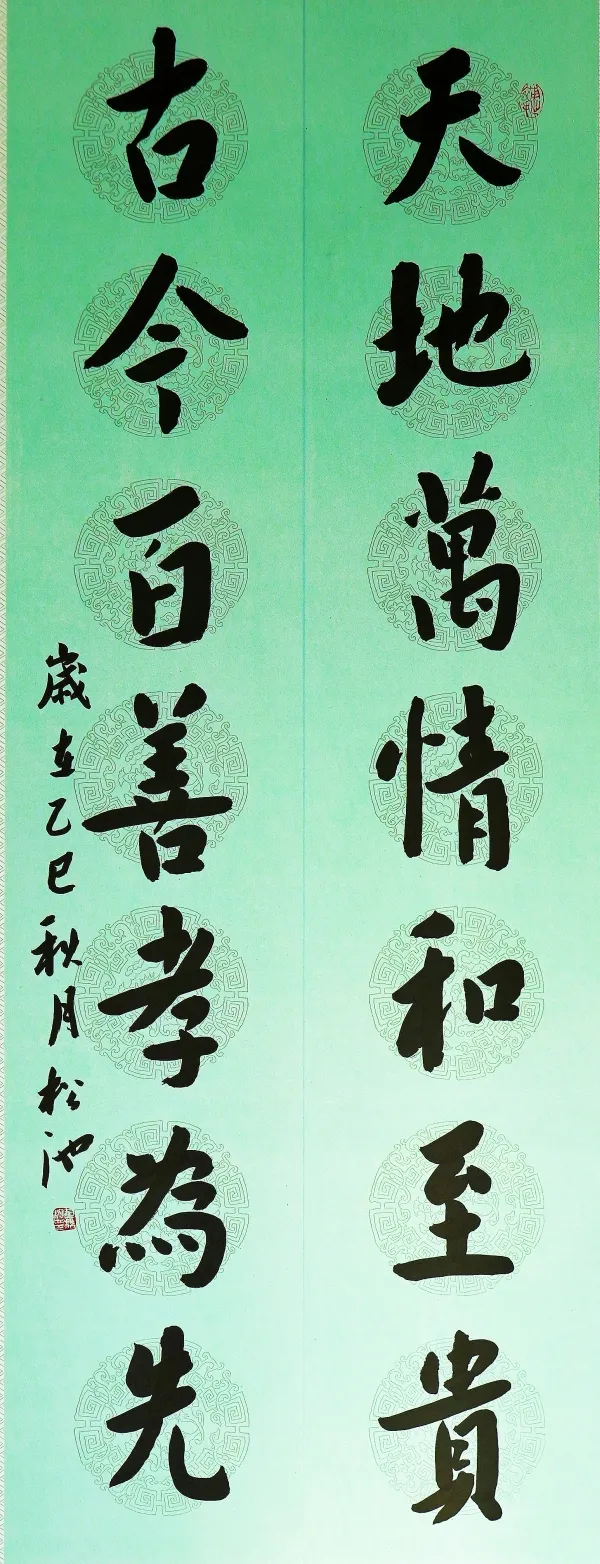 天地萬情和至貴
古今百善孝為先
歲在乙巳秋月松池